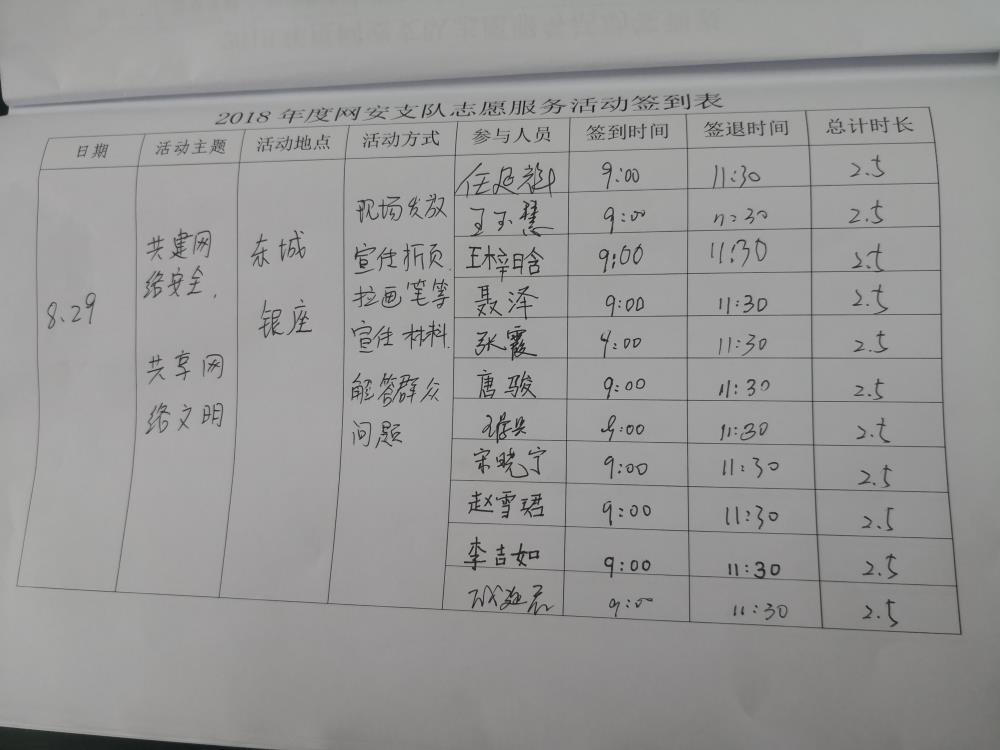 2018年度网安支队志愿服务活动签到表
日期 活动主题 活动地点 活动方式 参与人员 签到时间 签退时间 总计时长
8.29
共建网
络安全,
共享网
络文明
东城
银座
现场发放
宣传折页.
拉画笔等
宣传材料.
解答群众
问题
任延 9:00 11:30 2.5
王玉慧 9:00 11:30 2.5
王梓晗 9:00 11:30 2.5
聂泽 9:00 11:30 2.5
张霞 9:00 11:30 2.5
唐骏 9:00 11:30 2.5
9:00 11:30 2.5
宋晓宁 9:00 11:30 2.5
赵雪珺 9:00 11:30 2.5
李吉如 9:00 11:30 2.5
9:00 11:30 2.5